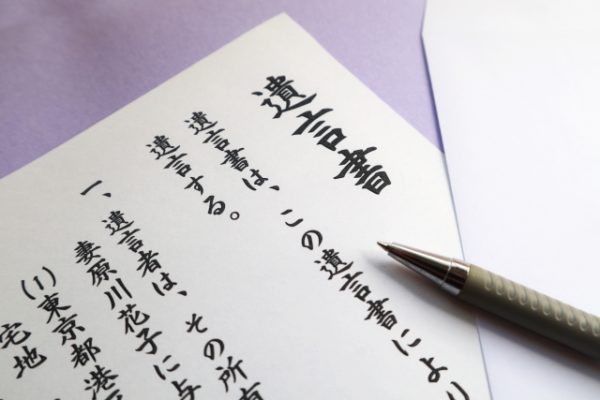 遺言書
遺言書は、この遺言書により
遺言する。
一、遺言者は、その所
妻原川花子に与
(1)東京都港
宅地